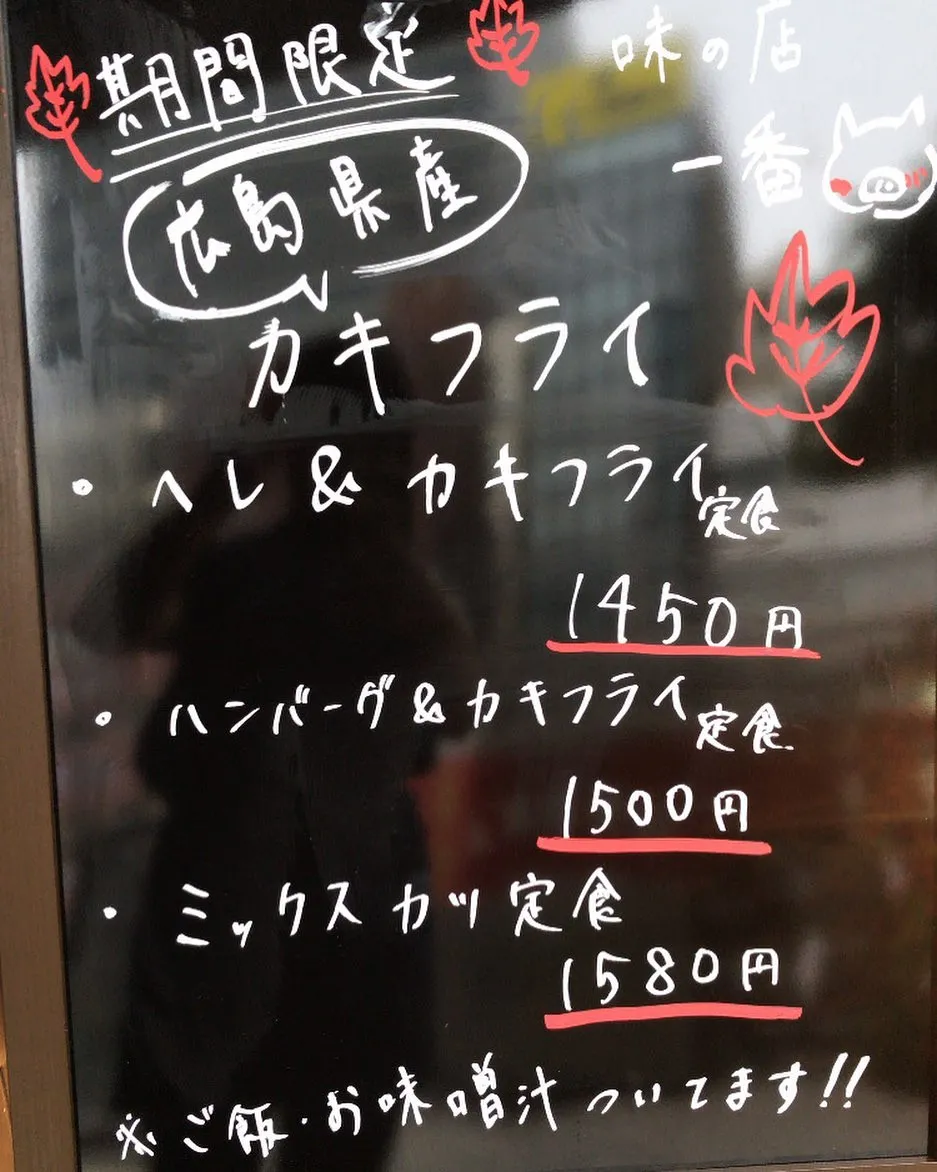 期間限定
味の店
一番
広島県産
カキフライ
・ヘレ&カキフライ定食
1450円
・ハンバーグ&カキフライ定食
1500円
・ミックスカツ定食
1580円
※ご飯・お味噌汁ついてます!!